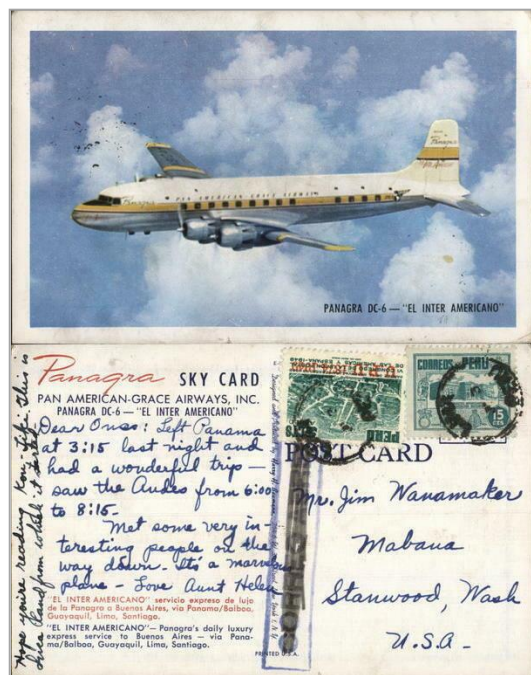 Panagra
PAN AMERICAN-GRACE AIRWAYS
PANAGRA DC-6 — "EL INTER AMERICANO"
Panagra SKY CARD
PAN AMERICAN-GRACE AIRWAYS, INC.
PANAGRA DC-6 — "EL INTER AMERICANO"
Left Panama
at 3:15 last night and
had a wonderful trip —
saw the Andes from 6:00
to 8:15.
Met some very in-
teresting people on the
way down. It's a marvelous
plane — Love Aunt Helen
"EL INTER AMERICANO" servicio expreso de lujo
de la Panagra a Buenos Aires, via Panama/Balboa,
Guayaquil, Lima, Santiago.
"EL INTER AMERICANO" — Panagra's daily luxury
express service to Buenos Aires — via Pana-
ma/Balboa, Guayaquil, Lima, Santiago.
Hope you're reading Kon Tiki this is
PRINTED U.S.A.
PERU
CORREOS PERU
15
CTS
POST CARD
Mr. Jim Wanamaker
Mabana
Stanwood, Wash
U.S.A-